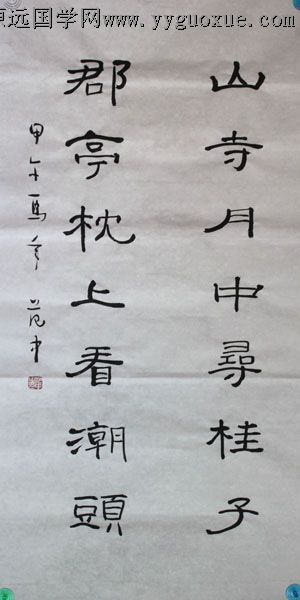 原远国学网www.yyguoxue.com
山寺月中尋桂子
郡亭枕上看潮頭
甲午馬年